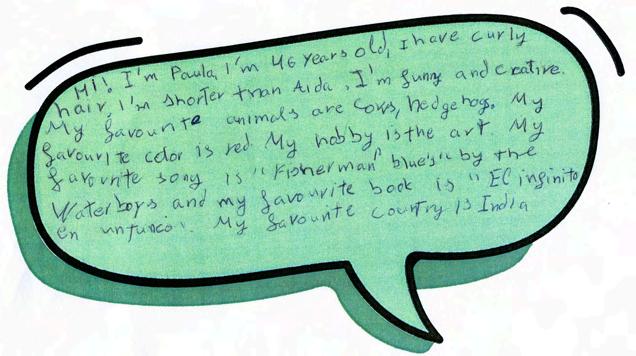 Hi! I'm Paula, I'm 46 years old, I have curly
hair, I'm shorter than Aida, I'm funny and creative.
My favourite animals are cows, hedgehogs. My
favourite color is red. My hobby is the art. My
favourite song is "Fisherman" blue's" by the
Waterboys and my favourite book is "El infinito
en un junco". My favourite country is India